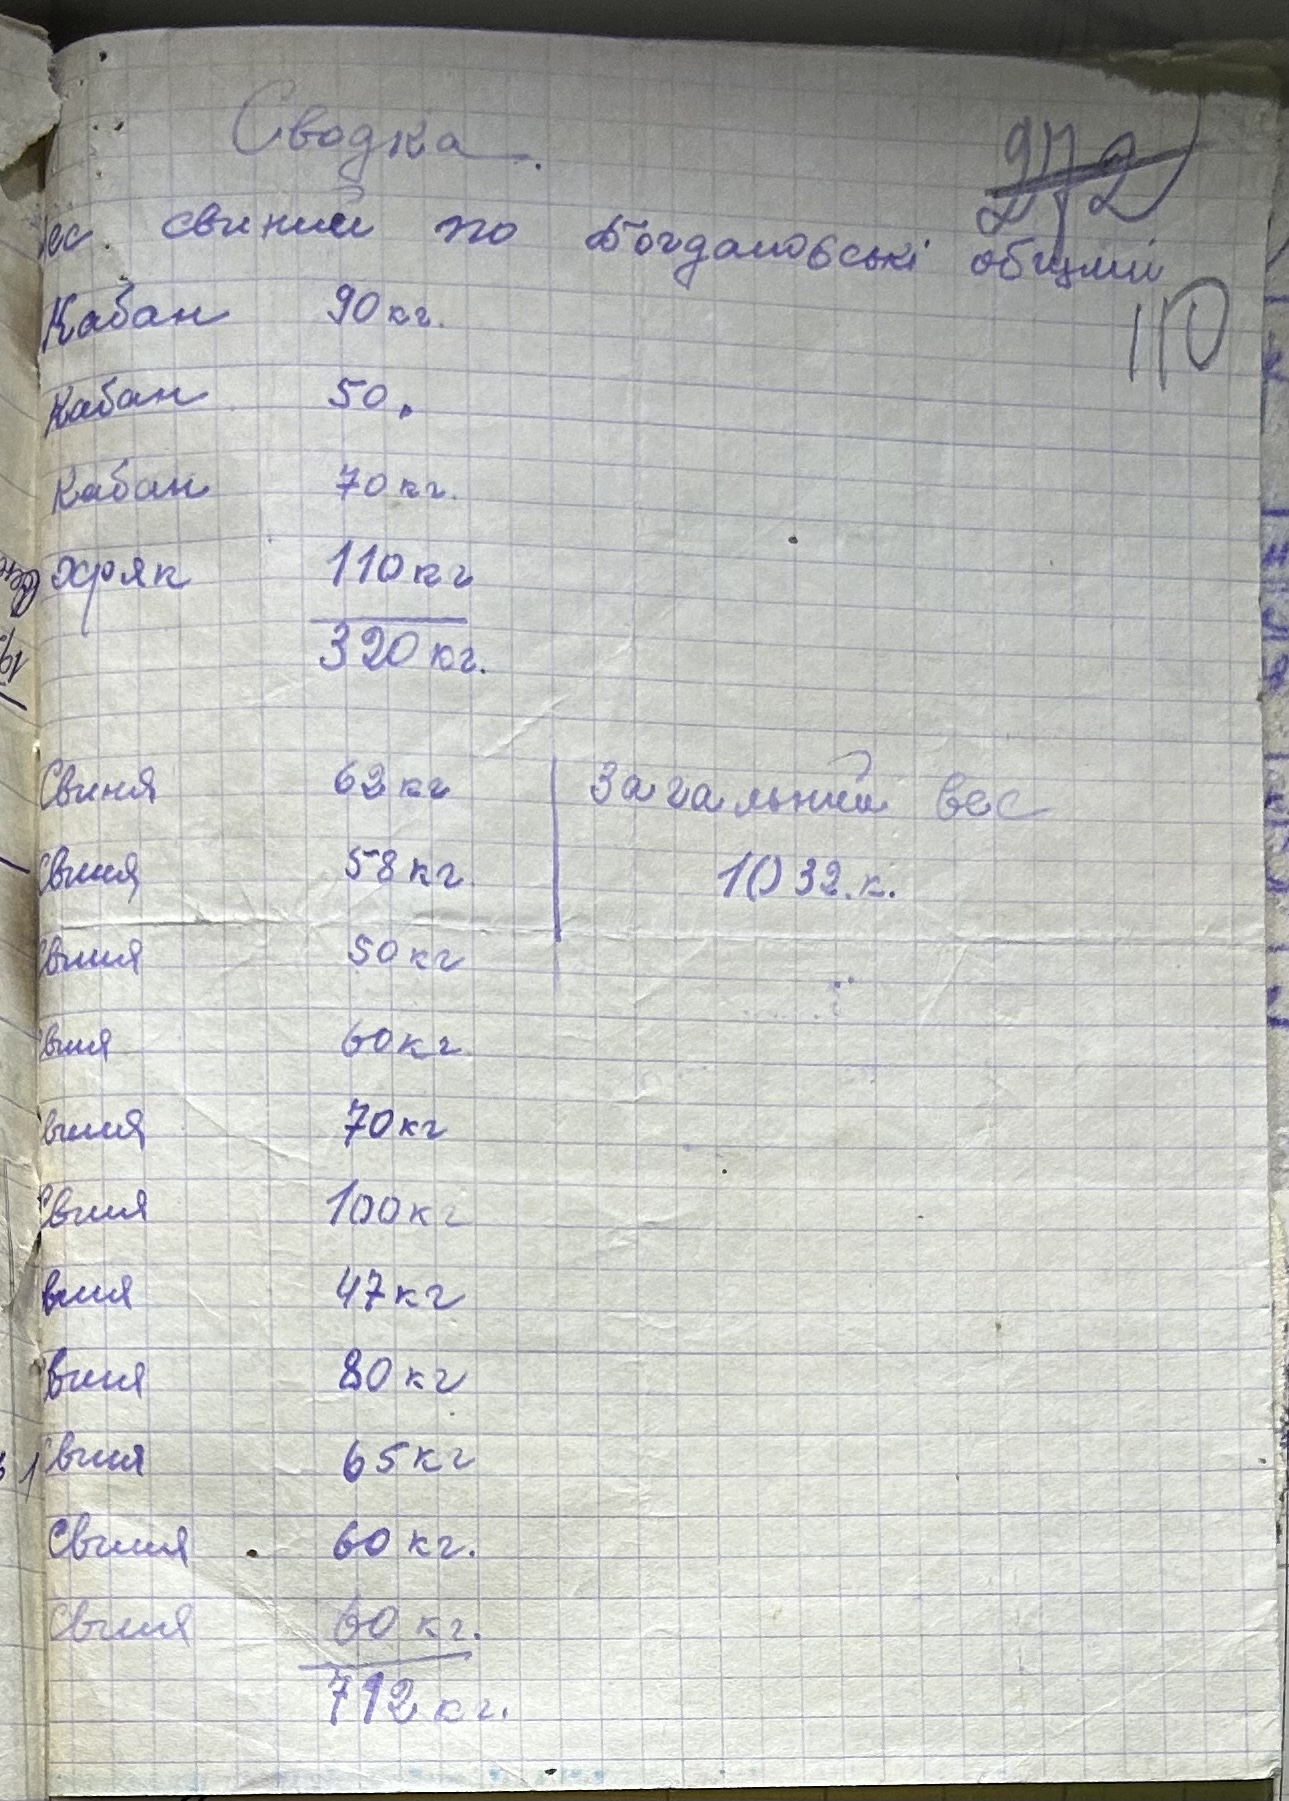 Сводка.
272
ес. свиний по Богдановські общині
110
Кабан 90 кг.
Кабан 50.
Кабан 70 кг.
Хряк 110 кг
320 кг.
Свиня 62 кг
Свиня 58 кг
Свиня 50 кг
свиня 60 кг
свиня 70 кг
Свиня 100 кг
виня 47 кг
виня 80 кг
Свиня 65 кг
Свиня 60 кг.
Свиня 60 кг.
712 кг.
Загальний вес
1032.к.